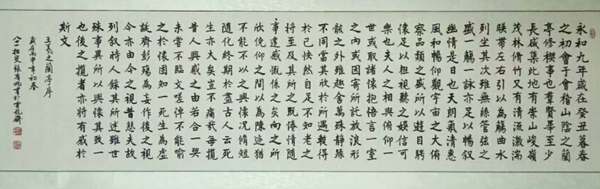 永和九年歲在癸丑暮春
之初會于會稽山陰之蘭
亭修稧事也羣賢畢至少
長咸集此地有崇山峻嶺
茂林脩竹又有清流激湍
暎帶左右引以為觴曲水
列坐其次雖無絲管弦之
盛觴一詠亦足以暢叙
幽情是日也天朗氣清惠
風和暢仰觀宇宙之大俯
察品類之盛所以遊目騁
懷足以極視聽之娛信可
樂也夫人之相與俯仰一
世或取諸懷抱悟言一室
之內或因寄所託放浪形
骸之外雖趣舍萬殊靜躁
不同當其欣於所遇暫得
於己怏然自足不知老之
將至及其所之既惓情隨
事遷感慨係之矣向之所
欣俛仰之間以為陳迹猶
不能不以之興懷況脩短
隨化終期於盡古人云死
生亦大矣豈不痛哉每攬
昔人興感之由若合一契
未嘗不臨文嗟悼不能喻
之於懷固知一死生為虛
誕齊彭殤為妄作後之視
今亦由今之視昔悲夫故
列叙時人錄其所述雖世
殊事異所以興懷其致一
也後之攬者亦將有感於
斯文
王羲之蘭亭序
甲申年初春